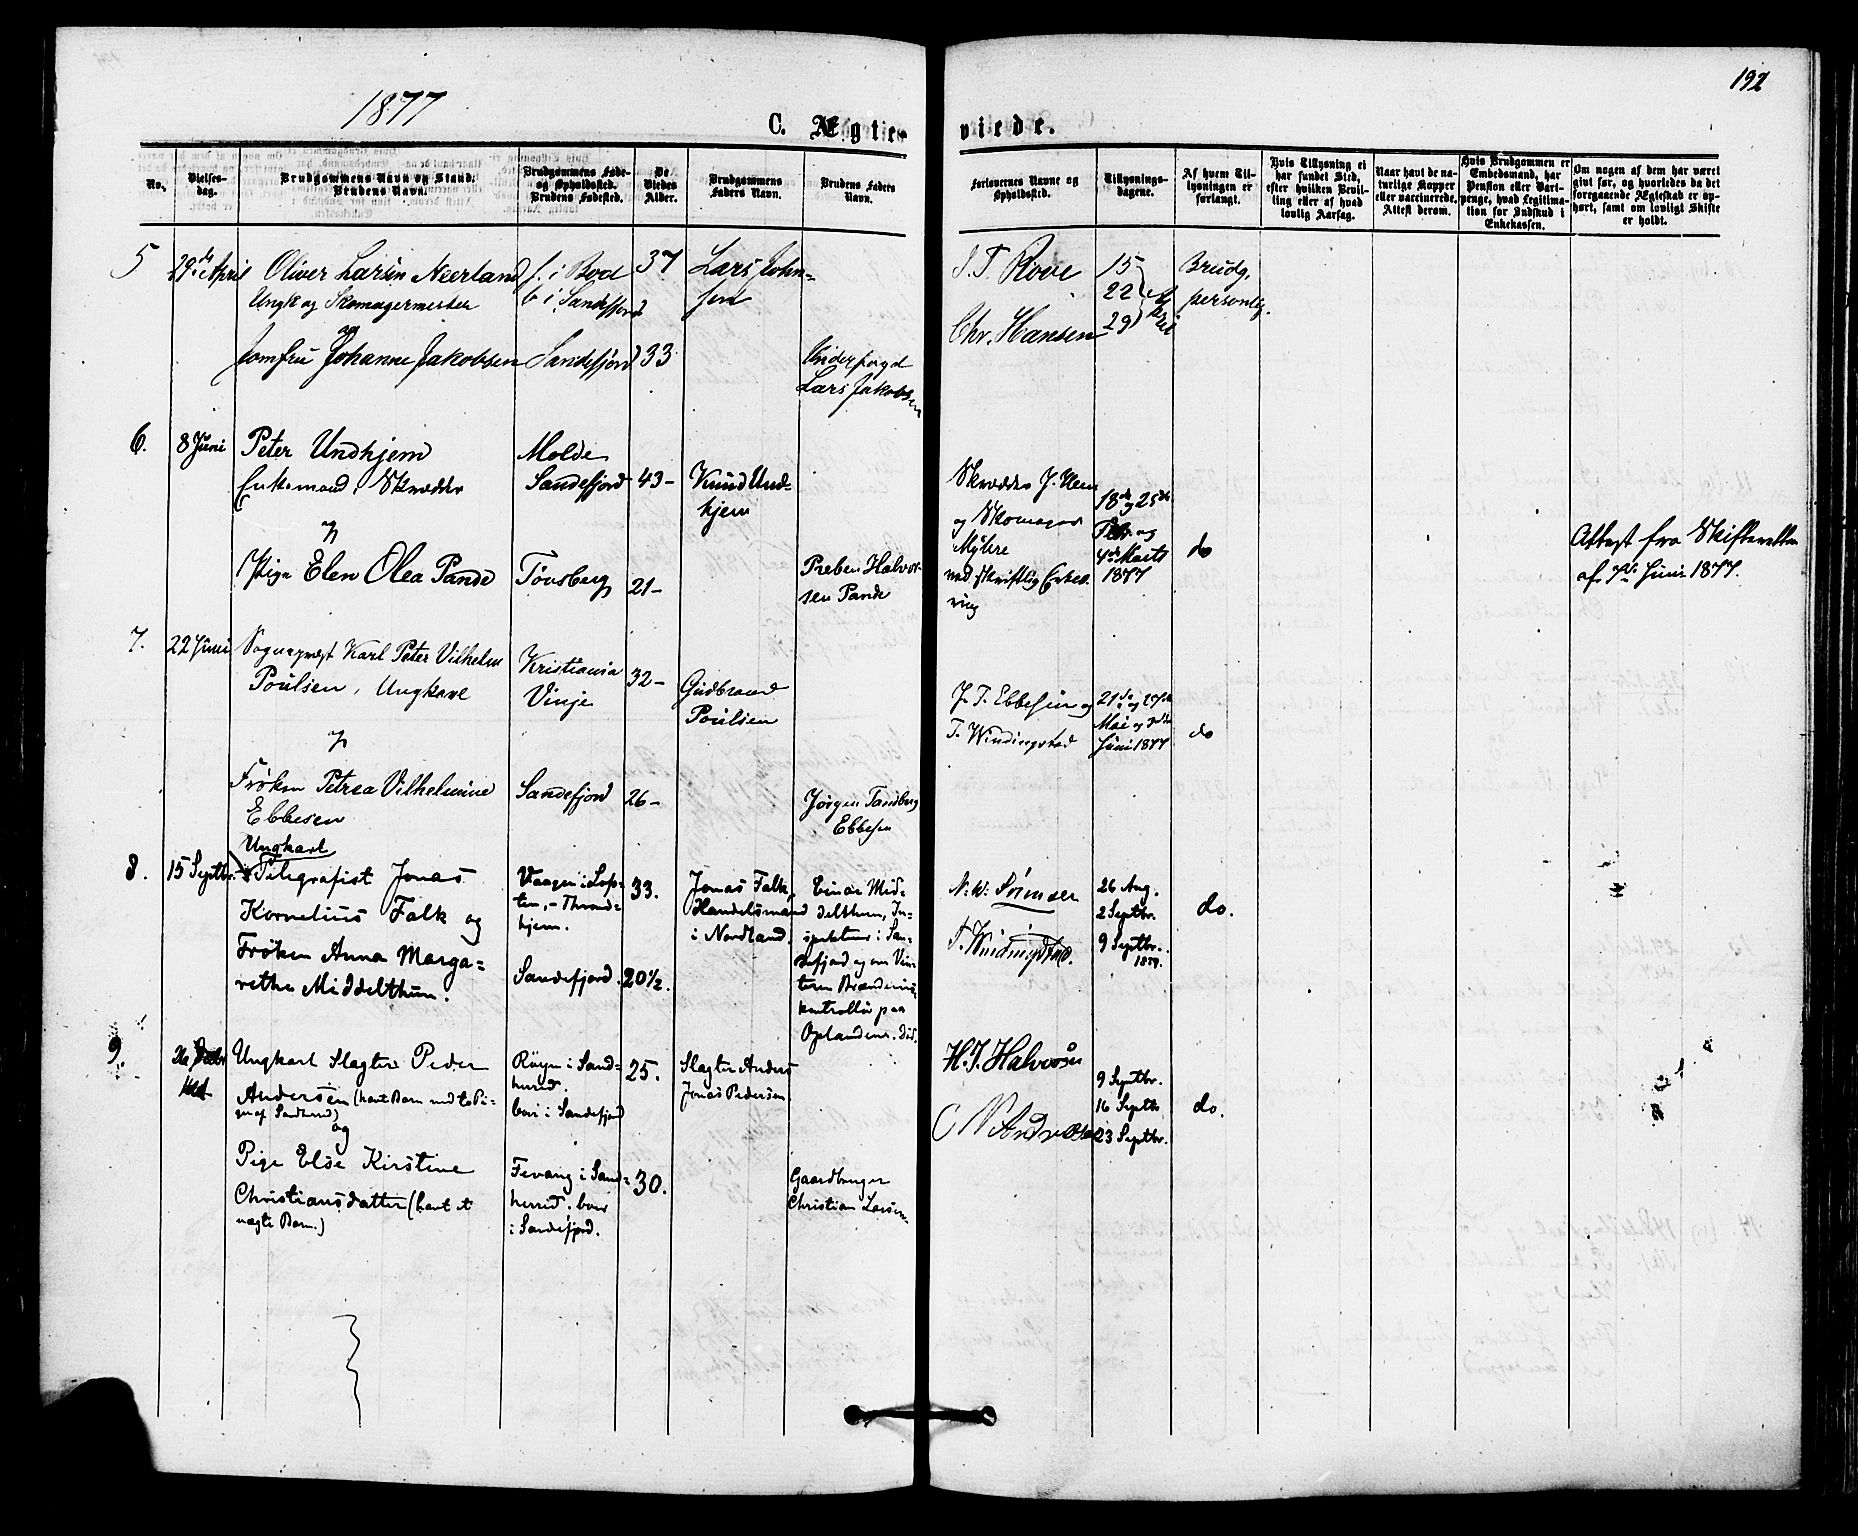 192
1877
C. Ægte-
viede.
No.
Vielses-
dag.
Brudgommens Navn og Stand.
Brudens Navn.
Brudgommens Føde-
og Opholdssted.
Brudens Fødested.
De
Viedes
Alder.
Brudgommens
Faders Navn.
Brudens Faders
Navn.
Forlovernes Navne og
Opholdssted.
Tillysnings-
dagene.
Af hvem Til-
lysningen er
forlangt.
Hvis Tillysning ei
har fundet Sted,
efter hvilken Bevil-
ling eller af hvad
lovlig Aarsag.
Naar havt de na-
turlige Kopper
eller vaccinerede,
Attest derom.
Hvis Brudgommen er
Embedsmand, har
Pension eller Vart-
penge, hvad Legitima-
tion for Indskud i
Enkekassen.
Om nogen af dem har været
givt før, og hvorledes da det
foregaaende Ægteskab er op-
hørt, samt om lovligt Skifte
er holdt.
5
29de April
Oliver Larsen Neerland
Ungk og Skomagermester
og
Jomfru Johanne Jakobsen
f. i Bod
b i Sandefjord
Sandefjord
37
33
Lars John-
sen
Underfogd
Lars Jakobsen
J. T. Rove
Chr. Hansen
15
22
29
Brudg.
personlig.
6.
8 Juni
Peter Undhjem
Enkemand, Skrædder
og
Pige Elen Olea Pande
Molde
Sandefjord
Tønsberg
43-
21-
Knud Und-
hjem
Preben Halvor-
sen Pande
Skrædder J.
og Skomager
Myhre
med skriftlig Erklæ-
ring
18de og 25de
Febr. og
4de Marts
1877
do
Attest fra Skifteretten
af 7de Juni 1877.
7.
22 Juni
Sognepræst Karl Peter Vilhelm
Poulsen, Ungkarl
og
Frøken Petrea Vilhelmine
Ebbesen
Kristiania
Vinje
Sandefjord
32-
26-
Gudbrand
Poulsen
Jørgen Tandberg
Ebbesen
J. T. Ebbesen og
T. Windingstad
21de og 27de
Mai og
Juni 1877
do
8.
15 Septbr.
Ungkarl
Telegrafist Jonas
Kornelius Falk og
Frøken Anna Marga-
rethe Middelthun.
Vaagen i Lofo-
ten, - Thrond-
hjem.
Sandefjord.
33.
20½.
Jonas Falk,
Handelsmand
i Nordland.
Einar Mid-
delthun, In-
spektør i San-
defjord og om Vin-
teren Brænderi-
kontrollør paa
Oplandene.
N. W. Sørensen
T. Windingstad.
26 Aug.
2 Septbr.
9 Septbr.
1877.
do.
9.
26
Ungkarl Slagter Peder
Andersen (havt Barn med to Pi-
ger af Sandherred)
og
Pige Else Kirstine
Christiansdatter (havt et
uægte Barn.)
i Sand-
herred.
bor i Sandefjord
Fevang i Sand-
herred. bor
i Sandefjord.
25.
30.
Slagter Anders
Jonas Pedersen
Gaardbruger
Christian Larsen.
H. J. Halvorsen
C N Andersen
9 Septbr.
16 Septbr.
23 Septbr.
do.